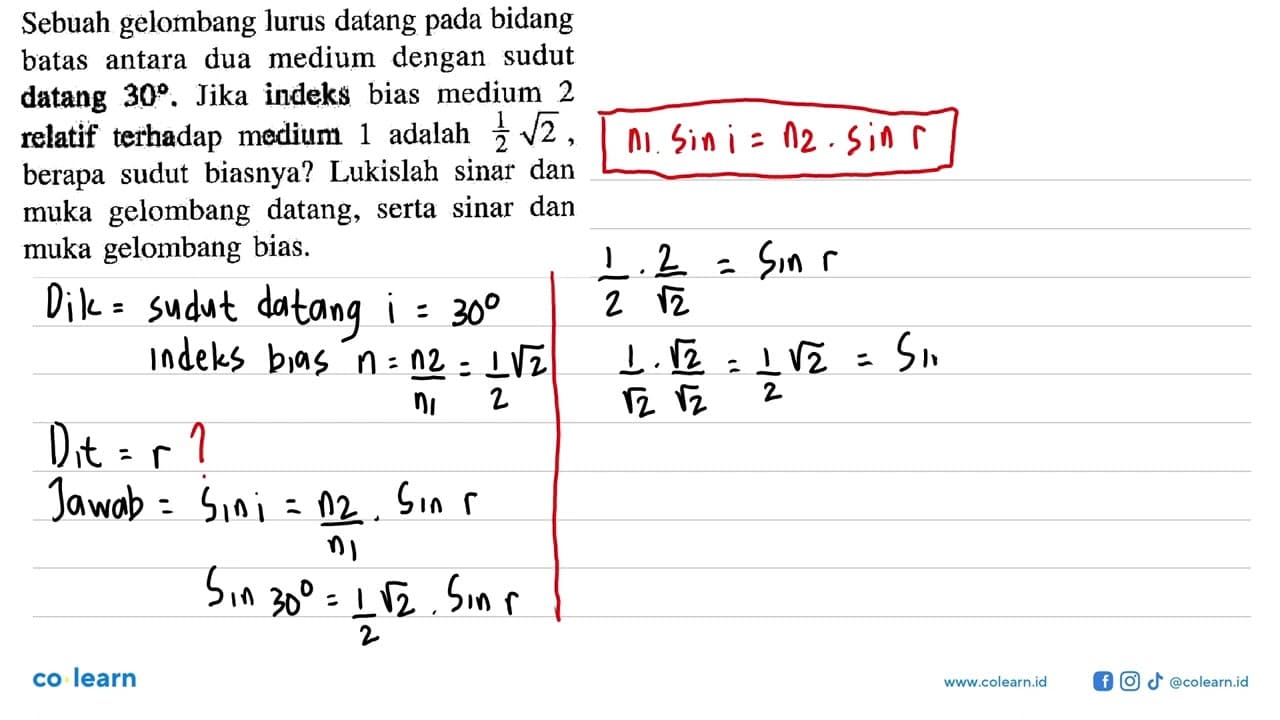 Sebuah gelombang lurus datang pada bidang
batas antara dua medium dengan sudut
datang 30°. Jika indeks bias medium 2
relatif terhadap medium 1 adalah 1/2 √2,
berapa sudut biasnya? Lukislah sinar dan
muka gelombang datang, serta sinar dan
muka gelombang bias.
Dik = sudut datang i = 30°
indeks bias n = n2/n1 = 1/2 √2
Dit = r?
Jawab = Sin i = n2/n1 . Sin r
Sin 30° = 1/2 √2 . Sin r
n1. Sin i = n2 . sin r
1/2 . 2/√2 = Sin r
1/√2 . √2/√2 = 1/2 √2 = Sin
co learn
www.colearn.id
@colearn.id